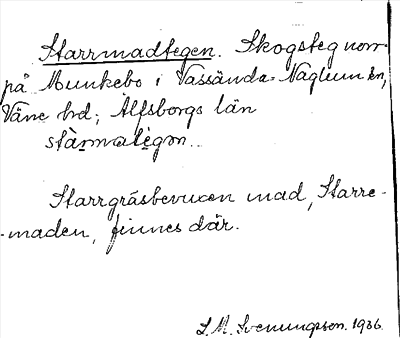 Starrmadtegen. Skogsteg norr
på Munkebo i Vassända-Naglum sn,
Väne hd, Älfsborgs län
stàrmatègən..
Starrgräsbevuxen mad, Starre-
-maden, finnes där.
S. M. Svenungsson. 1936.